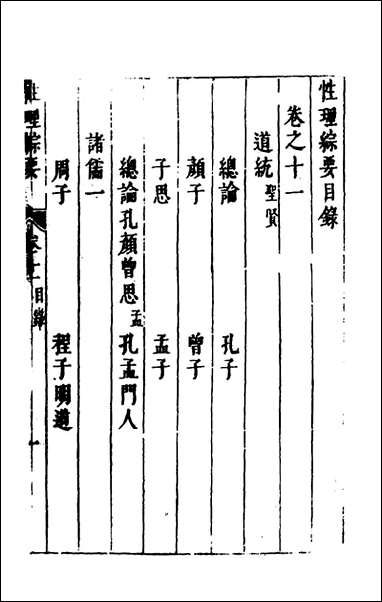 性理綜要目錄
卷之十一
道統 聖賢
總論 孔子
顏子 曾子
子思 孟子
總論孔顏曾思孟 孔孟門人
諸儒一
周子 程子明道
性理綜要 卷十一目錄 一